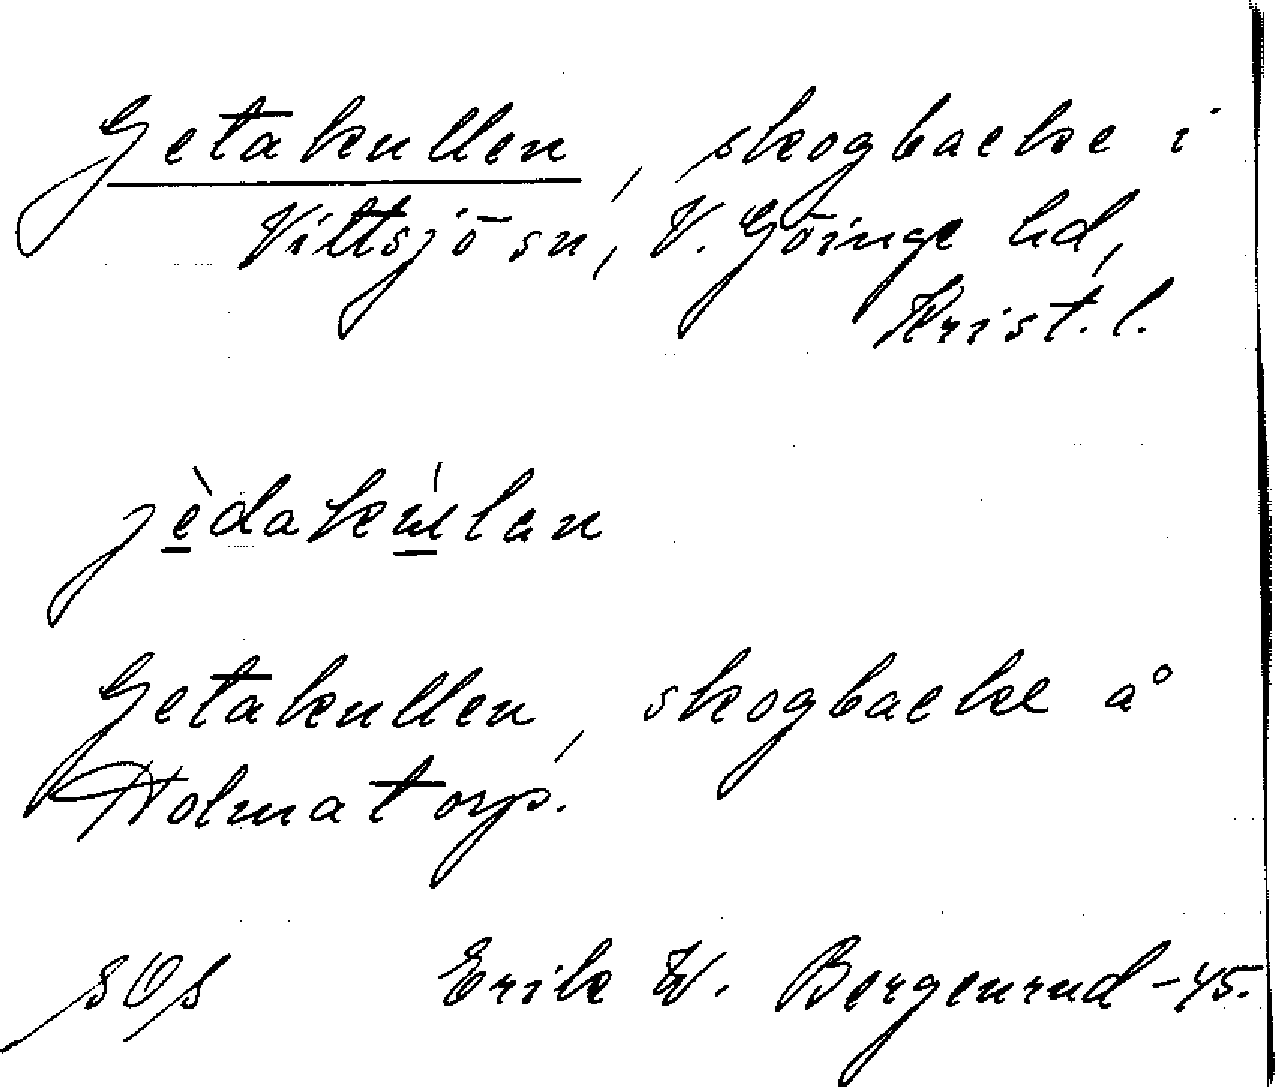 Getakullen, skogbacke i
Vittsjö sn, V. Göinge hd,
Krist. l.
jèdakúlan
Getakullen, skogbacke å
Holmatorp.
sOs Erik W. Bergenrud -45.